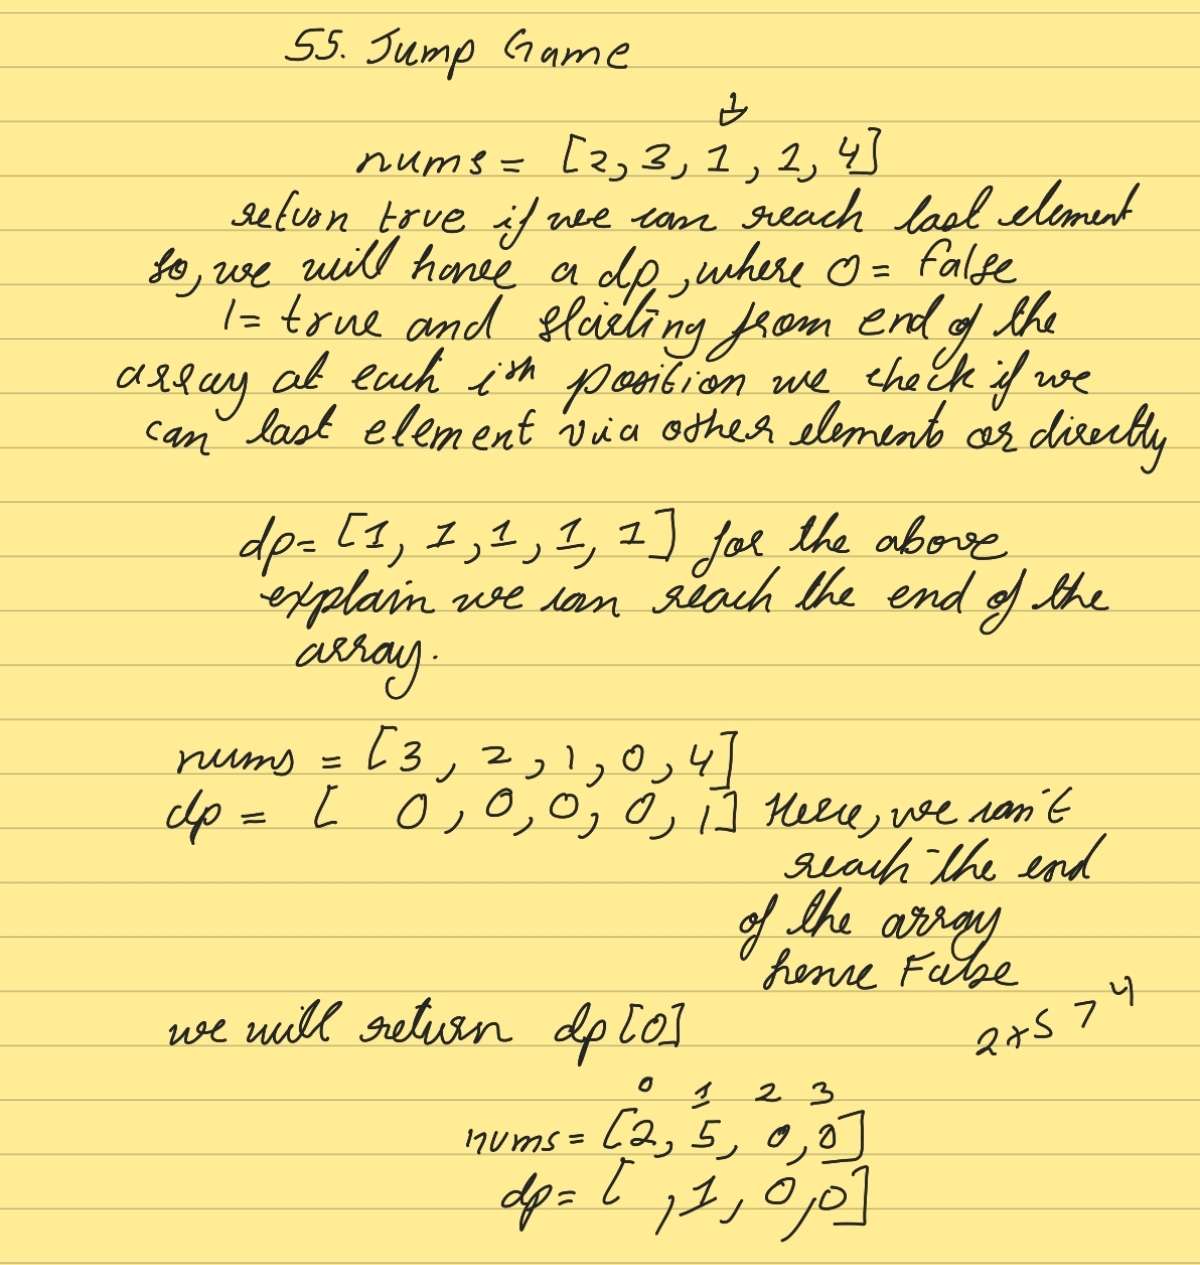 55. Jump Game
1
nums = [2, 3, 1, 1, 4]
return true if we can reach last element
so, we will have a dp, where 0 = false
1 = true and starting from end of the
array at each ith position we check if we
can last element via other elements or directly
dp = [1, 1, 1, 1, 1] for the above
explain we can reach the end of the
array.
nums = [3, 2, 1, 0, 4]
dp = [ 0, 0, 0, 0, 1] Here, we can't
reach the end
of the array
hence False
we will return dp[0]
2 x 5 7 4
0 1 2 3
nums = [2, 5, 0, 0]
dp = [ , 1, 0, 0]